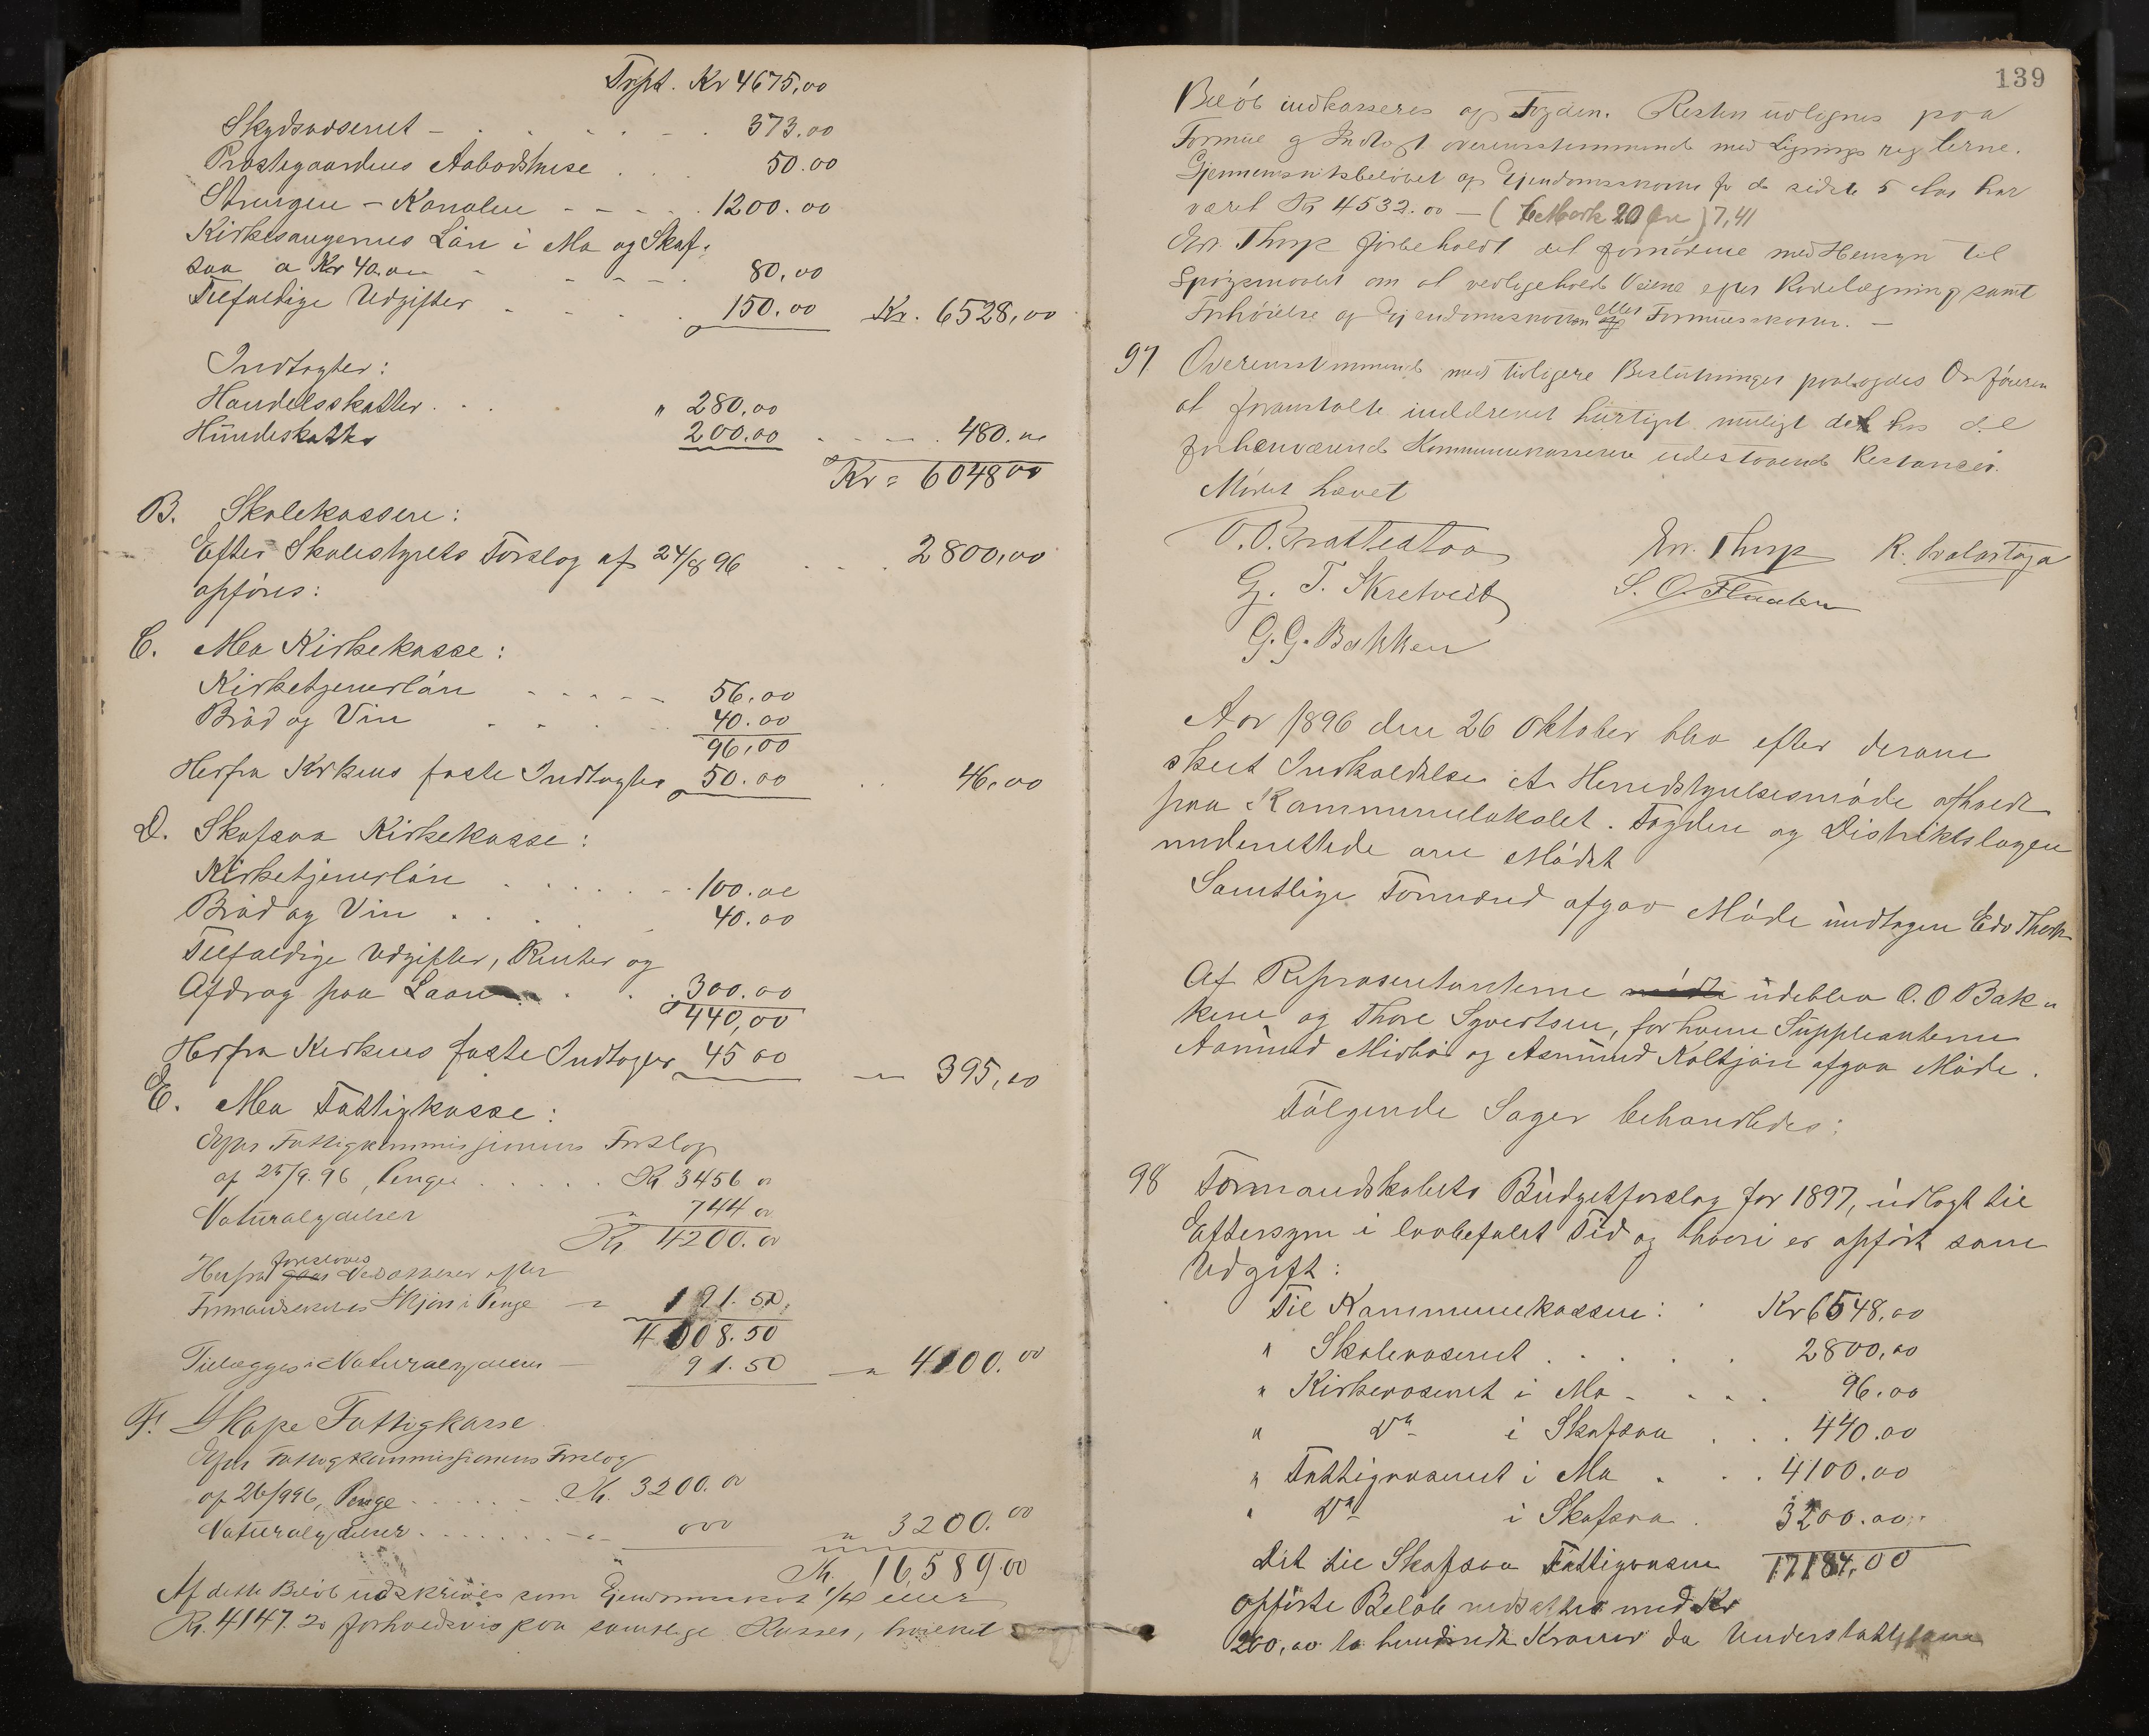 Trspt. Kr 4675,00
Skydsvæsenet - . . . . - . 373.00
Præstegaardens Aabodshuse . . . 50.00
Strengen - Kanalen - - - . . 1200.00
Kirkesangernes Løn i Mo og Skaf-
saa a Kr 40.00 - - - - . 80,00
Tilfældige Udgifter . . . . . 150.00 Kr. 6528,00
Indtægter:
Handelsskatter . . . " 280,00
Hundeskatter 200.00 . - - . 480.00
Kr = 6048 00
B. Skolekassen:
Efter Skolestyrets Forslag af 24/8 96 . . . 2800,00
opføres:
C. Mo Kirkekasse:
Kirketjenerløn - - - - - 56,00
Brød og Vin . . . . 40.00
96,00
Herfra Kirkens faste Indtægter 50.00 . . 46,00
D. Skafsaa Kirkekasse:
Kirketjenerløn . . . . . - . 100.00
Brød og Vin . . . 40.00
Tilfældige Udgifter, Renter og
Afdrag paa Laan . . . 300.00
440,00
Herfra Kirkens faste Indtægter 45 00 - " 395,00
E. Mo Fattigkasse:
Efter Fattigkommissjonens Forslag
af 25/9.96, Penge . . . . . Kr 3456 00
Naturalydelser " 744 00
Kr 4200.00
foreslaaes
Herfra gaar Nedsættelser efter
Formandskabets Skjøn i Penge - " 191.50
4008.50
Tillægges Naturalydelser - 91.50 - " 4100.00
F. Skafse Fattigkasse
Efter Fattigkommissjonens Forslag
af 26/9 96, Penge . . . . . - . Kr. 3200.00
Naturalydelser . . . . . . - " - 000 " 3200.00
Kr. 16,589 00
Af dette Beløb udskrives som Ejendomsskat 1/4 eller
Kr. 4147.25 forholdsvis paa samtlige Kasser, hvilket
139
Beløb indkasseres af Fogden. Resten udlignes paa
Formue og Indtægt overensstemmende med Ligningsreglerne.
Gjennemsnitsbeløbet af Ejendomsskatten for de sidste 5 Aar har
været Kr 4532.00 - ( Mark 20 Øre ) 7,41
Edv. Thorp forbeholdt det fornødne med Hensyn til
Spørgsmaalet om at vedligeholde Veiene efter Rodelægning samt
Forhøielse af Ejendomsskatten eller af Formuesskatten. -
97 Overensstemmende med tidligere Beslutninger paalagdes Ordføreren
at foranstalte inddrevet hurtigst muligt det hos de
forhenværende Kommunekasserere udestaaende Restancer.
Mødet hævet
O. O. Brattestaa Edv. Thorp
G. T. Skretveit
G. G. Bakken
Aar 1896 den 26 Oktober blev efter derom
skeet Indkaldelse et Herredstyrelsesmøde afholdt
paa Kommunelokalet. Fogden og Distriktslægen
underrettede om Mødet
Samtlige Formænd afgav Møde undtagen Edv Thorp
Af Repræsentanterne mødte udeblev O. O Bak-
ken og Thore Syvertsen, for hvem Suppleanterne
Aamund Midbø og Asmund Koltjøn afgav Møde.
Følgende Sager behandledes:
98 Formandskabets Budgetforslag for 1897, udlagt til
Eftersyn i lovbefalet Tid og hvori er opført som
Udgift:
Til Kommunekassen: . Kr 6548,00
" Skolevæsenet . . . . . 2800,00
" Kirkevæsenet i Mo - . . . 96.00
" Do i Skafsaa . . . 440.00
" Fattigvæsenet i Mo . . . 4100.00
" Do i Skafsaa . 3200.00
Det til Skafsaa Fattigvæsen 17184,00
opførte Beløb nedsættes med Kr
200,00 to hundrede Kroner da